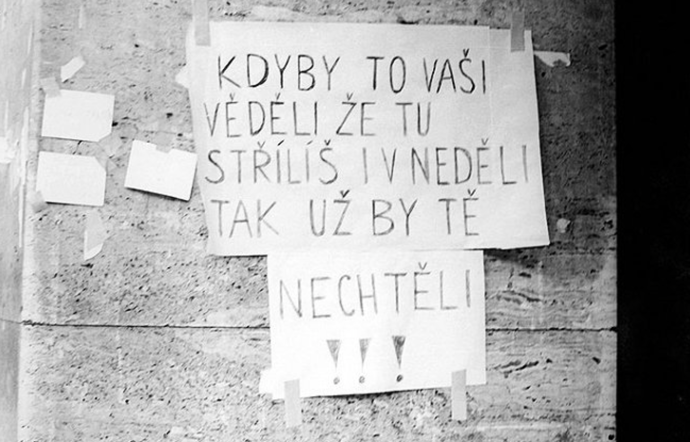 KDYBY TO VAŠI
VĚDĚLI ŽE TU
STŘÍLÍŠ I V NEDĚLI
TAK UŽ BY TĚ
NECHTĚLI
!!!